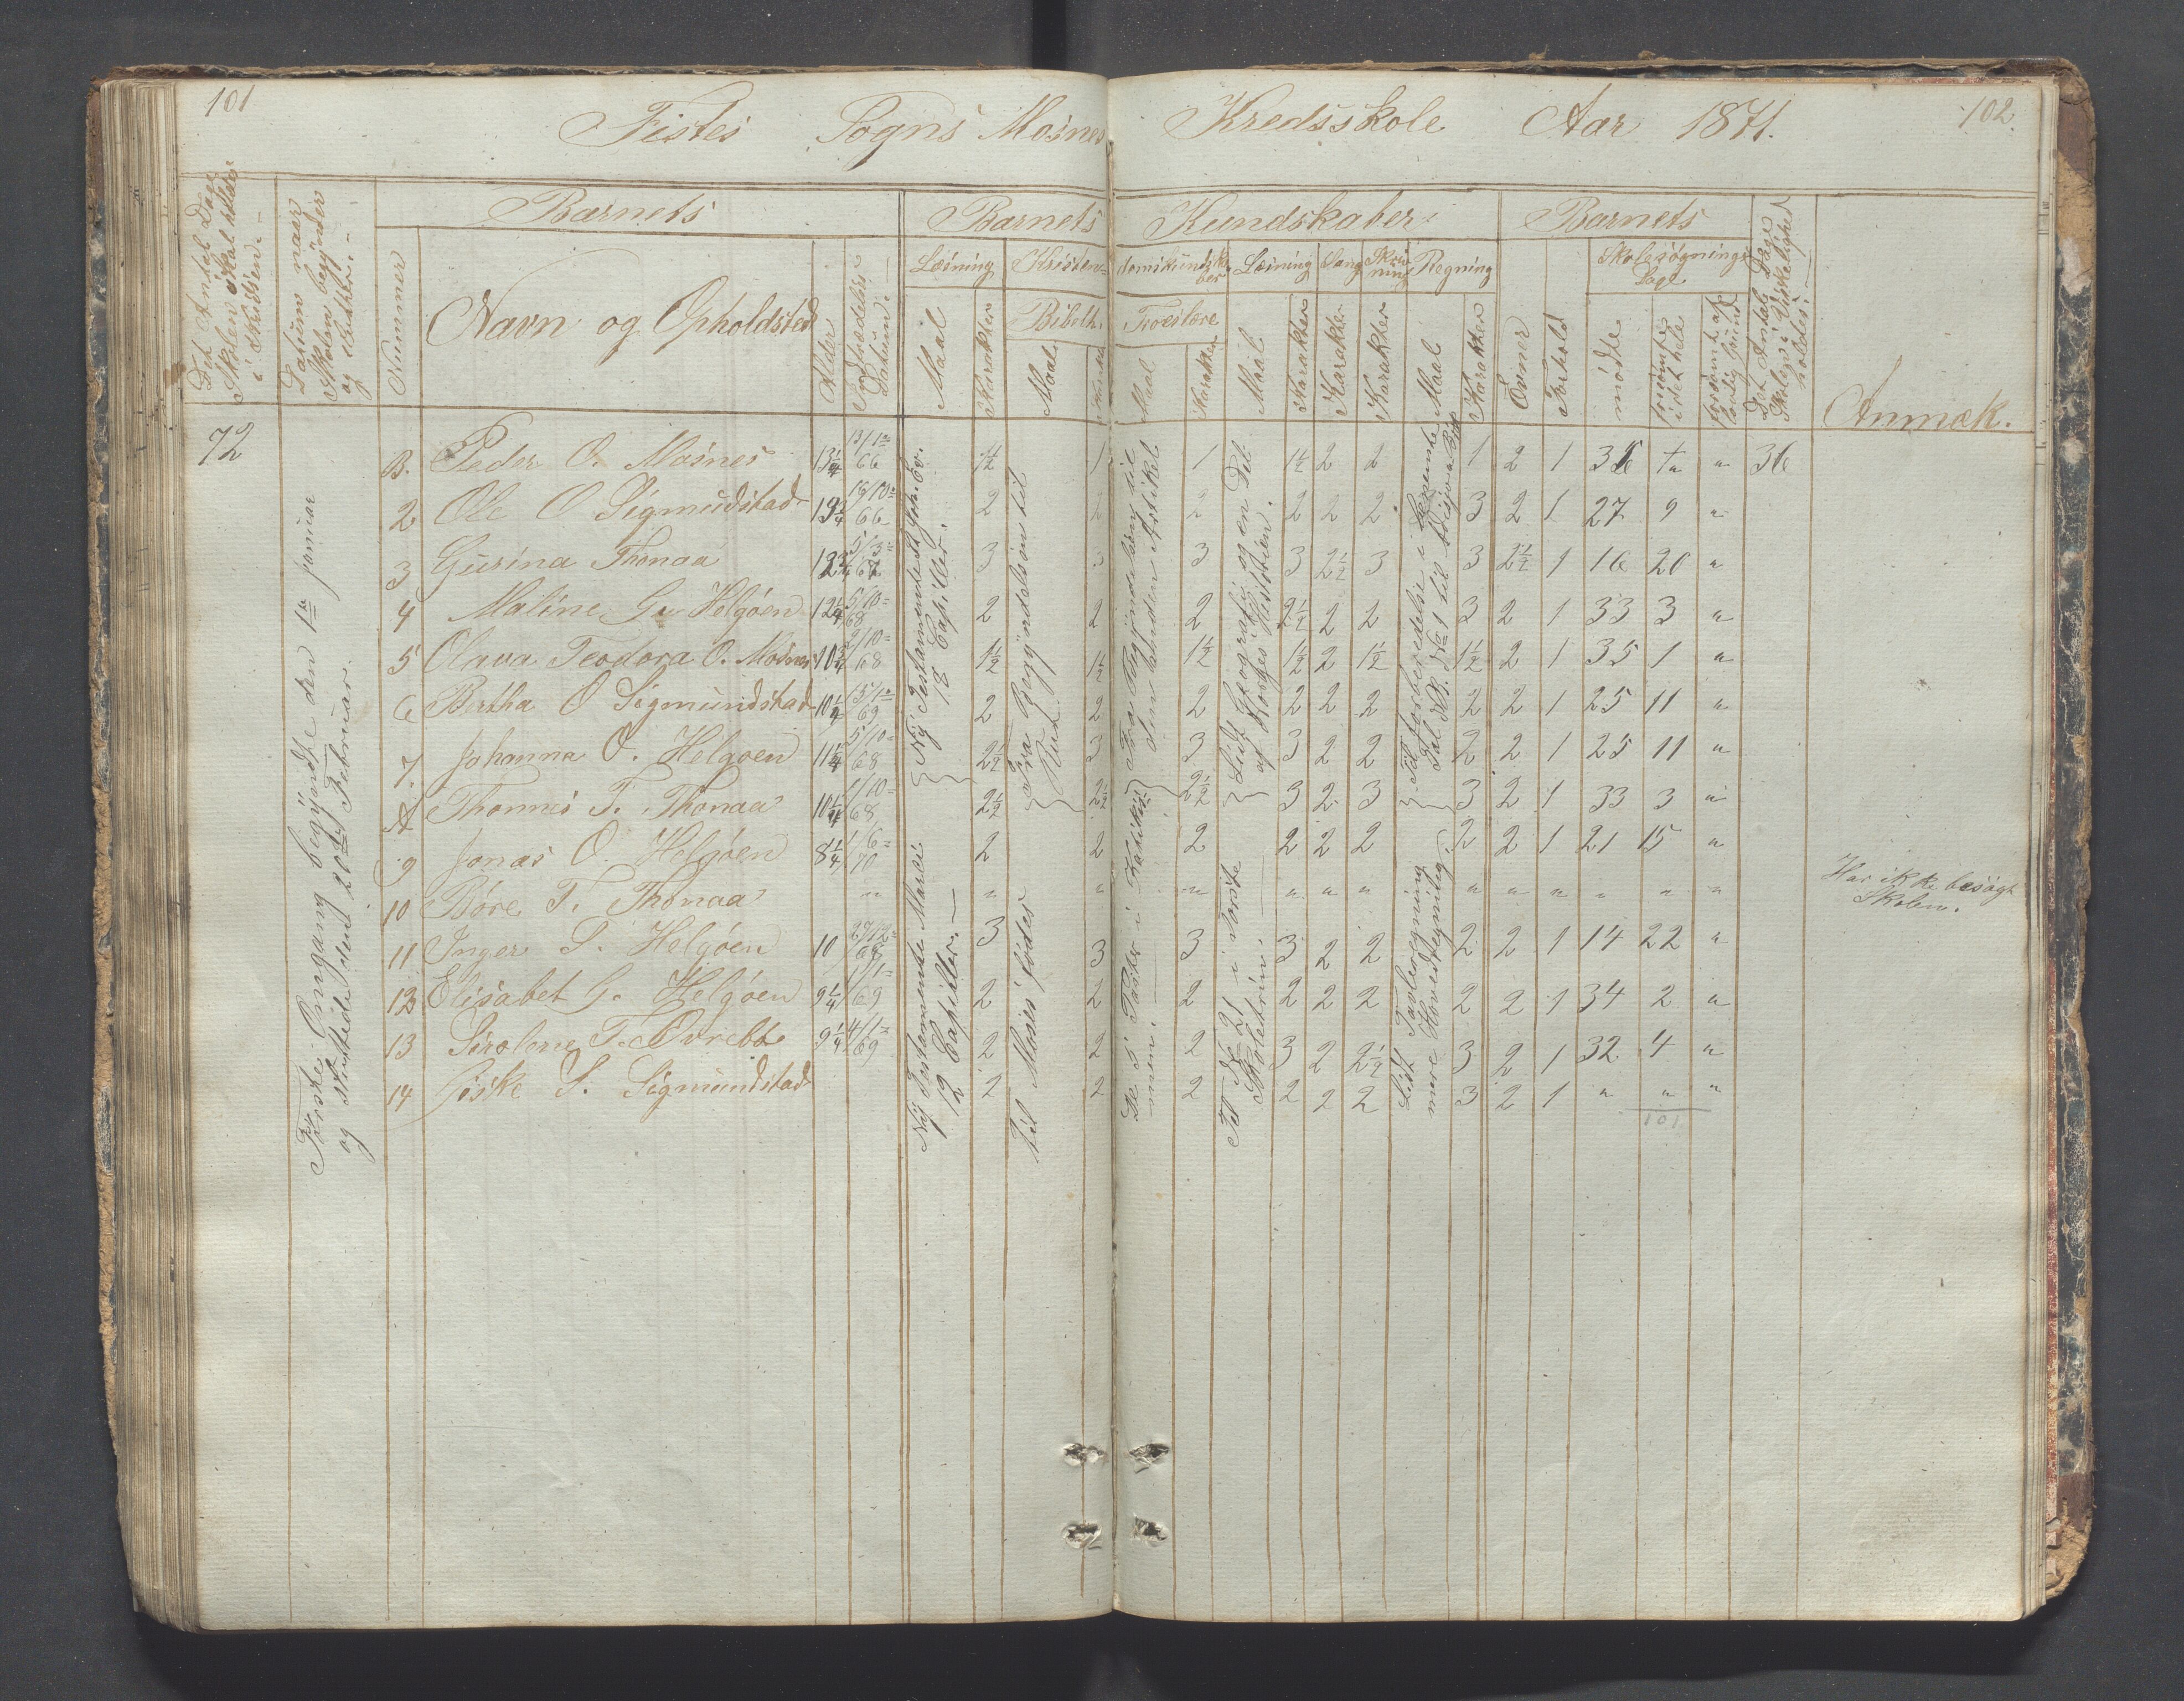 101
102.
Fistes Sogns Mosnes Kredsskole Aar 1871.
Det Antal Dage
Skolen skal holdes
i Kredsen.
Datum naar
Skolen begynder
og endtes.
Barnets
Nummer
Navn og Opholdsted
Alder
Indtrædelses
Datum.
Barnets Kundskaber
Læsning
Maal
Karakter
Kristendomskundskaber
Bibelh.
Maal
Troeslære
Maal
Karakter
Læsning
Maal
Karakter
Sang
Karakter
Skrivning
Karakter
Regning
Maal
Karakter
Barnets
Evner
Forhold
Skolesøgnings
Dage
mødte
forsømte
i det hele
forsømt af
lovlig Grund
Det Antal Dage
Skolen i Virkeligheden
holdes.
Anmærk.
72
Første Omgang begyndte den 1ste januar
og sluttede den 20de Februar.
B. Peder O. Mosnes 13 1/4 13/1 66 1 1/2 1 1 1 1/2 2 2 1 2 1 36 " " 36
2 Ole O Sigmundstad 16/10 66 2 2 2 2 2 2 3 2 1 27 9 "
3 Gurina Thonaa 3 3 3 3 2 1/2 3 3 2 1/2 1 16 20 "
4 Maline G. Helgøen 12 1/4 5/10 68 2 2 2 2 1/2 2 2 3 2 1 33 3 "
5 Olava Teodora O. Mosnes 10 3/4 9/10 68 1 1/2 1 1/2 1 1/2 1 1/2 2 1 1/2 1 1/2 2 1 35 1 "
6 Bertha O Sigmundstad 10 1/4 15/1 69 2 2 2 2 2 2 2 2 1 25 11 "
7 Johanna O. Helgøen 11 1/4 5/10 68 2 1/2 3 3 3 2 2 2 2 1 25 11 "
8 Thomes T. Thonaa 10 1/4 1/10 68 2 1/2 2 1/2 2 1/2 3 2 3 3 2 1 33 3 "
9 Jonas O. Helgøen 8 1/4 1/6 70 2 2 2 2 2 2 2 2 1 21 15 "
10 Børe T. Thonaa " " " " " " " " " " " " "
Har ikke besøgt
Skolen.
11 Inger P. Helgøen 10 3 3 3 3 2 2 2 2 1 14 22 "
12 Elisabet G. Helgøen 9 1/4 1/1 69 2 2 2 2 2 2 2 2 1 34 2 "
13 Serolene T. Øvrebø 9 1/4 4/1 69 2 2 2 3 2 2 1/2 3 2 1 32 4 "
14 Giske S. Sigmundstad 2 2 2 2 2 2 3 2 1 " " "
101
Ny Testamente St Joh. Ev.
18 Cap. Ver.
Ny Testamente Marci
12 Capitler.
Fra Begyndelsen til
Ruth.
Til Mosis fødes
Fra Begyndelsen til
den tredie Artikel
De 5 Parter i Katekismen
Lidt Geografi og en Del
af Norges Historien.
Til § 21 i Vorste
Skoletrin.
Til Forberedelse i benævnte
Tal. No 1 til
Lidt Tavleregning
mere Hovedregning.